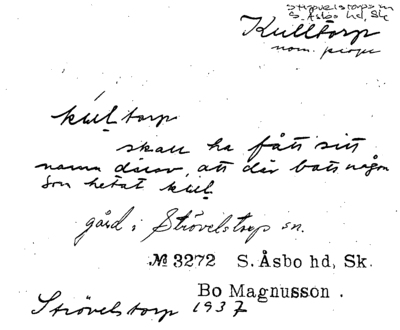 Strövelstorps sn
S. Åsbo hd, Sk
Kulltorp
nom. propr
kul̲torp
skall ha fått sitt
namn därav, att där bott någon
som hetat kul̲
gård i Strövelstorp sn.
№ 3272 S. Åsbo hd, Sk.
Bo Magnusson.
Strövelstorp 1937